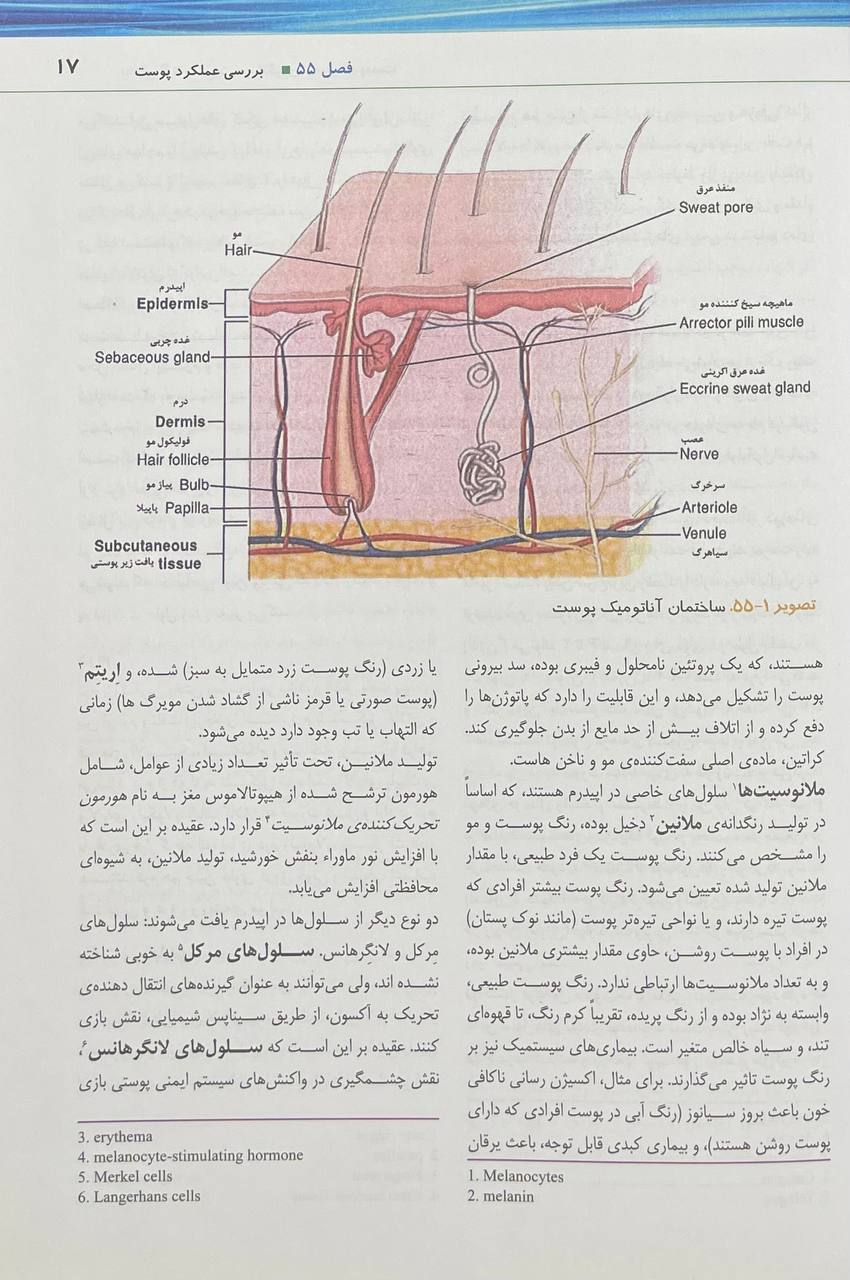 فصل ۵۵ ■ بررسی عملکرد پوست
۱۷
منفذ عرق
Sweat pore
مو
Hair
اپیدرم
Epidermis
ماهیچه سیخ کننده مو
Arrector pili muscle
غده چربی
Sebaceous gland
غده عرق اکرینی
Eccrine sweat gland
درم
Dermis
فولیکول مو
Hair follicle
عصب
Nerve
پیاز مو Bulb
پاپیلا Papilla
سرخرگ
Arteriole
Venule
سیاهرگ
Subcutaneous
بافت زیر پوستی tissue
تصویر ۱-۵۵. ساختمان آناتومیک پوست
هستند، که یک پروتئین نامحلول و فیبری بوده، سد بیرونی
پوست را تشکیل می‌دهد، و این قابلیت را دارد که پاتوژن‌ها را
دفع کرده و از اتلاف بیش از حد مایع از بدن جلوگیری کند.
کراتین، ماده‌ی اصلی سفت‌کننده‌ی مو و ناخن هاست.
ملانوسیت‌ها۱ سلول‌های خاصی در اپیدرم هستند، که اساساً
در تولید رنگدانه‌ی ملانین۲ دخیل بوده، رنگ پوست و مو
را مشخص می‌کنند. رنگ پوست یک فرد طبیعی، با مقدار
ملانین تولید شده تعیین می‌شود. رنگ پوست بیشتر افرادی که
پوست تیره دارند، و یا نواحی تیره‌تر پوست (مانند نوک پستان)
در افراد با پوست روشن، حاوی مقدار بیشتری ملانین بوده،
و به تعداد ملانوسیت‌ها ارتباطی ندارد. رنگ پوست طبیعی،
وابسته به نژاد بوده و از رنگ پریده، تقریباً کرم رنگ، تا قهوه‌ای
تند، و سیاه خالص متغیر است. بیماری‌های سیستمیک نیز بر
رنگ پوست تاثیر می‌گذارند. برای مثال، اکسیژن رسانی ناکافی
خون باعث بروز سیانوز (رنگ آبی در پوست افرادی که دارای
پوست روشن هستند)، و بیماری کبدی قابل توجه، باعث یرقان
1. Melanocytes
2. melanin
یا زردی (رنگ پوست زرد متمایل به سبز) شده، و اِریتم۳
(پوست صورتی یا قرمز ناشی از گشاد شدن مویرگ ها) زمانی
که التهاب یا تب وجود دارد دیده می‌شود.
تولید ملانین، تحت تأثیر تعداد زیادی از عوامل، شامل
هورمون ترشح شده از هیپوتالاموس مغز به نام هورمون
تحریک‌کننده‌ی ملانوسیت۴ قرار دارد. عقیده بر این است که
با افزایش نور ماوراء بنفش خورشید، تولید ملانین، به شیوه‌ای
محافظتی افزایش می‌یابد.
دو نوع دیگر از سلول‌ها در اپیدرم یافت می‌شوند: سلول‌های
مِرکل و لانگِرهانس. سلول‌های مرکل۵ به خوبی شناخته
نشده اند، ولی می‌توانند به عنوان گیرنده‌های انتقال دهنده‌ی
تحریک به آکسون، از طریق سیناپس شیمیایی، نقش بازی
کنند. عقیده بر این است که سلول‌های لانگرهانس۶،
نقش چشمگیری در واکنش‌های سیستم ایمنی پوستی بازی
3. erythema
4. melanocyte-stimulating hormone
5. Merkel cells
6. Langerhans cells